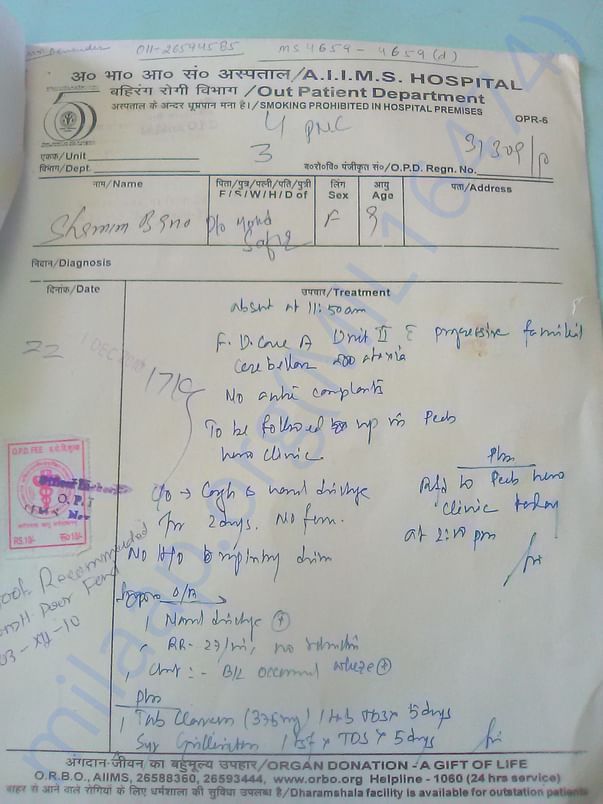 011-26594585 MS 4659 - 4659 (d)
अ० भा० आ० सं० अस्पताल/A.I.I.M.S. HOSPITAL
बहिरंग रोगी विभाग /Out Patient Department
अस्पताल के अन्दर धूम्रपान मना है।/SMOKING PROHIBITED IN HOSPITAL PREMISES
OPR-6
4 PNC
एकक/Unit
3
विभाग/Dept.
ब०रो०वि० पंजीकृत सं०/O.P.D. Regn. No.
नाम/Name
पिता/पुत्र/पत्नी/पति/पुत्री
F/S/W/H/D of
लिंग
Sex
आयु
Age
पता/Address
Shamim Bano D/o Mohd F 9
Safiq
निदान/Diagnosis
दिनांक/Date
उपचार/Treatment
absent at 11:50am
22 DEC
F. U. Case A Unit II c progressive familial
cerebellar ataxia
No active complaints
To be followed up in Peds
neuro clinic
Plan
Refd to Peds neuro
clinic today
at 2:00 pm
c/o → Cough & nasal discharge
for 2 days. No fever.
No H/o
O/E
Nasal discharge +
RR - 27/min, no
Chest :- B/L occasional wheeze +
Plan
Tab (375mg) 1 tab TDS x 5 days
Syr 1 tsf x TDS x 5 days
O.P.D. FEE
O.P.D
RS.10/- रू010/-
Recommended
Poor Fund
03-XII-10
milaap.org(MIL16474)
अंगदान-जीवन का बहुमूल्य उपहार/ORGAN DONATION - A GIFT OF LIFE
O.R.B.O., AIIMS, 26588360, 26593444, www.orbo.org Helpline - 1060 (24 hrs service)
बाहर से आने वाले रोगियों के लिए धर्मशाला की सुविधा उपलब्ध है/Dharamshala facility is available for outstation patients